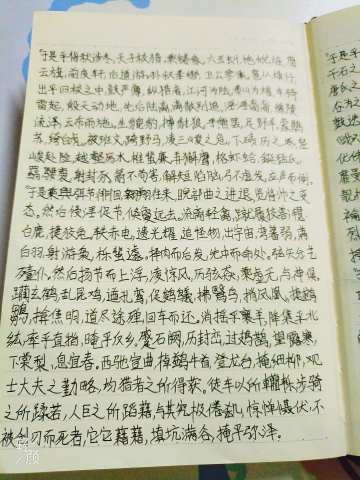 于是乎背秋涉冬,天子校猎。乘镂象,六玉虬,拖蜺旌,靡
云旗,前皮轩,后道游。孙叔奉辔,卫公参乘,扈从横行,
出乎四校之中。鼓严簿,纵猎者,江河为阹,泰山为橹,车骑
雷起,殷天动地,先后陆离,离散别追。淫淫裔裔,缘陵
流泽,云布雨施。生貔豹,搏豺狼,手熊罴,足野羊,蒙鹖
苏,绔白虎,被斑文,跨野马,凌三嵕之危,下碛历之坻。径
峻赴险,越壑厉水。椎蜚廉,弄獬豸,格虾蛤,鋋猛氏,
羂騕褭,射封豕。箭不苟害,解脰陷脑,弓不虚发,应声而倒。
于是乘舆弭节徘徊,翱翔往来,睨部曲之进退,览将帅之变
态。然后侵淫促节,倏夐远去,流离轻禽,蹴履狡兽。轊
白鹿,捷狡兔。轶赤电,遗光耀。追怪物,出宇宙,弯蕃弱,满
白羽,射游枭,栎蜚遽。择肉而后发,先中而命处,弦矢分,艺
殪仆。然后扬节而上浮,凌惊风,历骇猋,乘虚无,与神俱。
躏玄鹤,乱昆鸡,遒孔鸾,促鵔鸃,拂翳鸟,捎凤凰,捷鹓
鶵,掩焦明。道尽途殚,回车而还。消摇乎襄羊,降集乎北
纮,率乎直指,晻乎反乡。蹷石阙,历封峦,过鳷鹊,望露寒,
下棠梨,息宜春。西驰宣曲,濯鹢牛首,登龙台,掩细柳,观
士大夫之勤略,均猎者之所得获。徒车以所轥轹,步骑
之所蹂若,人臣之所蹈藉,与其穷极倦谻,惊惮慑伏,不
被创刃而死者,它它藉藉,填坑满谷,掩平弥泽。